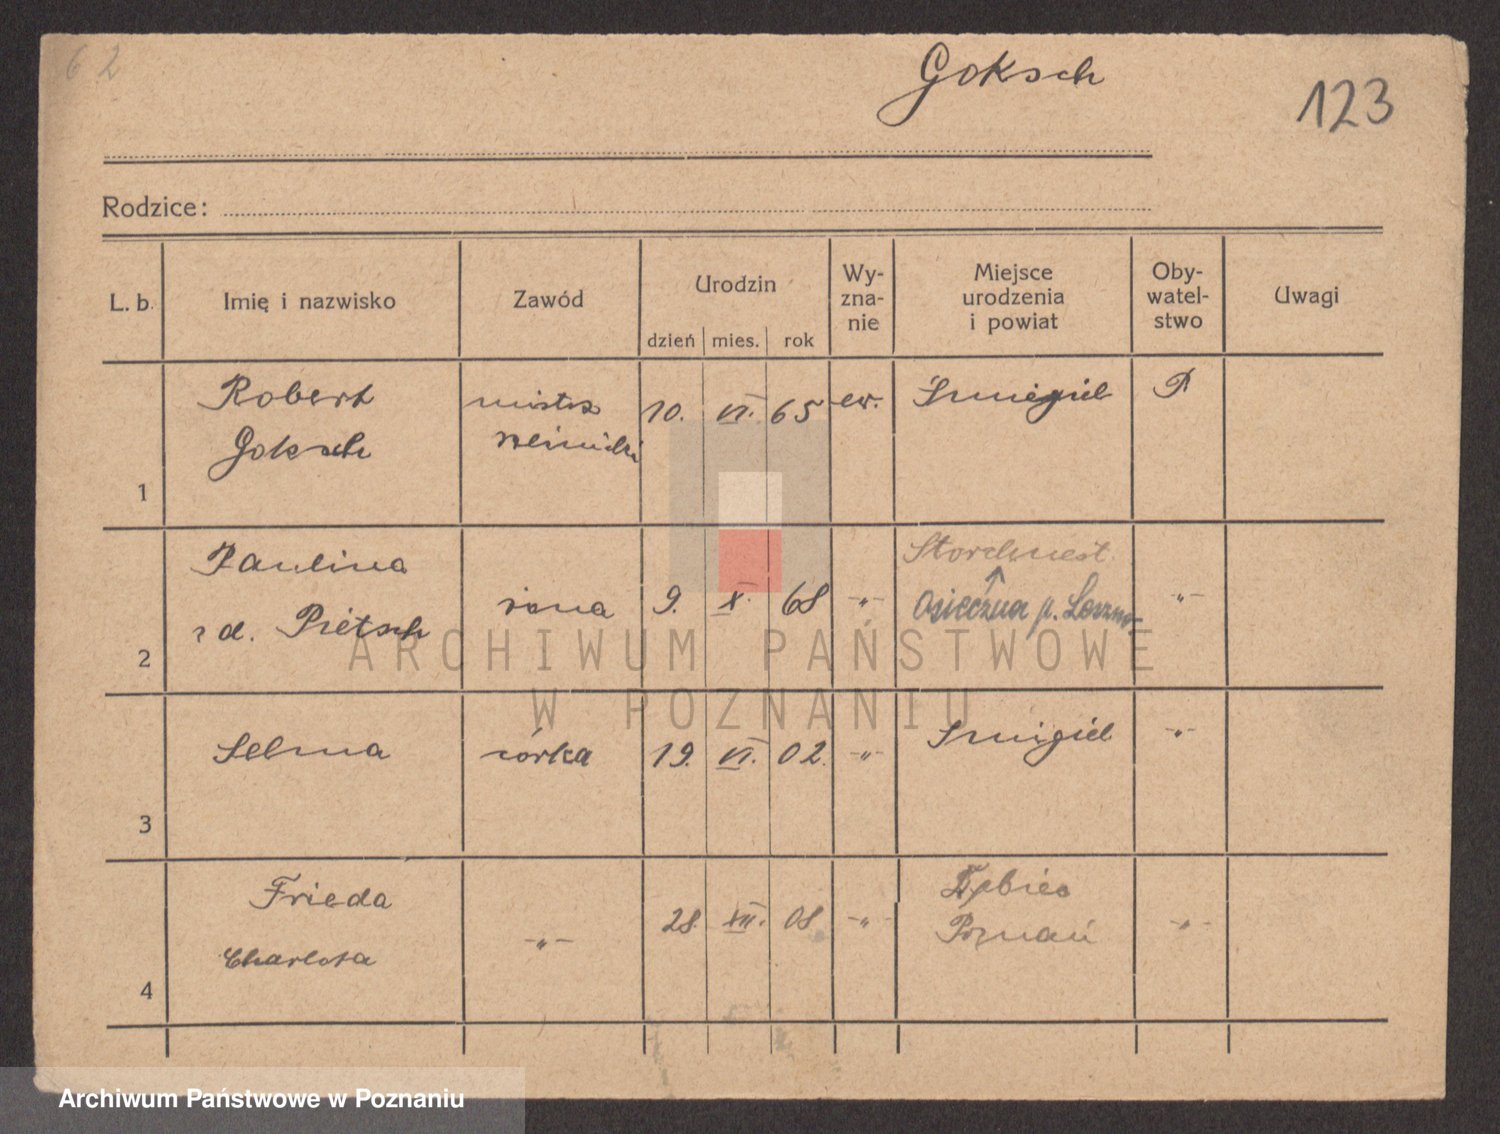 62
Goksch
123
Rodzice:
L. b. Imię i nazwisko Zawód Urodzin Wy-
zna-
nie Miejsce
urodzenia
i powiat Oby-
watel-
stwo Uwagi
dzień mies. rok
1 Robert
Goksch mistrz 10. VI. 65 ew. Śmigiel P
2 Paulina
zd. Pietsch żona 9. X. 68 -„- Storchnest
Osieczna p. Leszno -„-
3 Selma córka 19. VI. 02. -„- Śmigiel -„-
4 Frieda
Charlota -„- 28. XII. 08 -„- Dębiec
Poznań -„-
ARCHIWUM PAŃSTWOWE
W POZNANIU
Archiwum Państwowe w Poznaniu